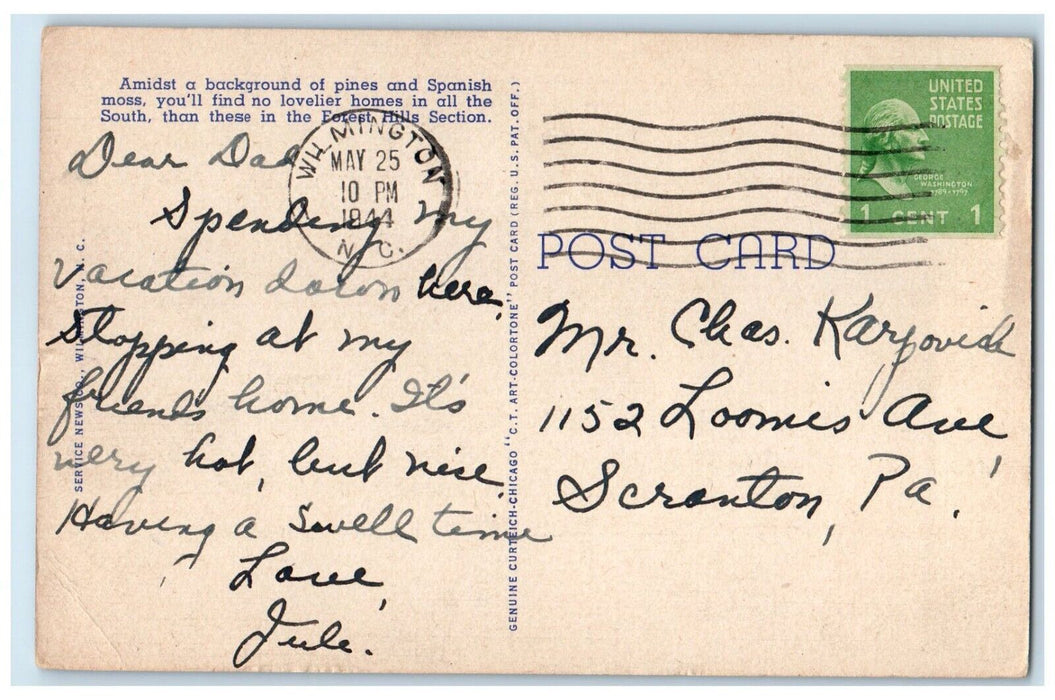 Amidst a background of pines and Spanish
moss, you'll find no lovelier homes in all the
South, than these in the Forest Hills Section.
Dear Dad
Spending my
vacation down here,
stopping at my
friends home. It's
very hot, but nice.
Having a swell time
Love,
Jule.
SERVICE NEWS CO., WILMINGTON, N. C.
GENUINE CURTEICH-CHICAGO "C.T. ART-COLORTONE" POST CARD (REG. U.S. PAT. OFF.)
WILMINGTON
MAY 25
10 PM
1944
N.C.
UNITED
STATES
POSTAGE
GEORGE
WASHINGTON
1789-1797
1 CENT 1
POST CARD
Mr. Chas. Karpovich
1152 Loomis Ave,
Scranton, Pa.